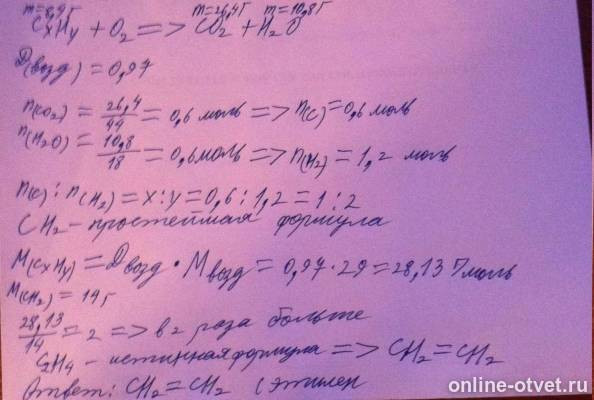 m=8,4г m=26,4г m=10,8г
CxHy + O2 => CO2 + H2O
D(возд) = 0,97
n(CO2) = 26,4/44 = 0,6 моль => n(C) = 0,6 моль
n(H2O) = 10,8/18 = 0,6 моль => n(H2) = 1,2 моль
n(C) : n(H2) = x : y = 0,6 : 1,2 = 1 : 2
CH2 – простейшая формула
M(CxHy) = Dвозд · Mвозд = 0,97 · 29 = 28,13 г/моль
M(CH2) = 14 г
28,13/14 = 2 => в 2 раза больше
C2H4 – истинная формула => CH2=CH2
Ответ: CH2=CH2 (этилен
online-otvet.ru